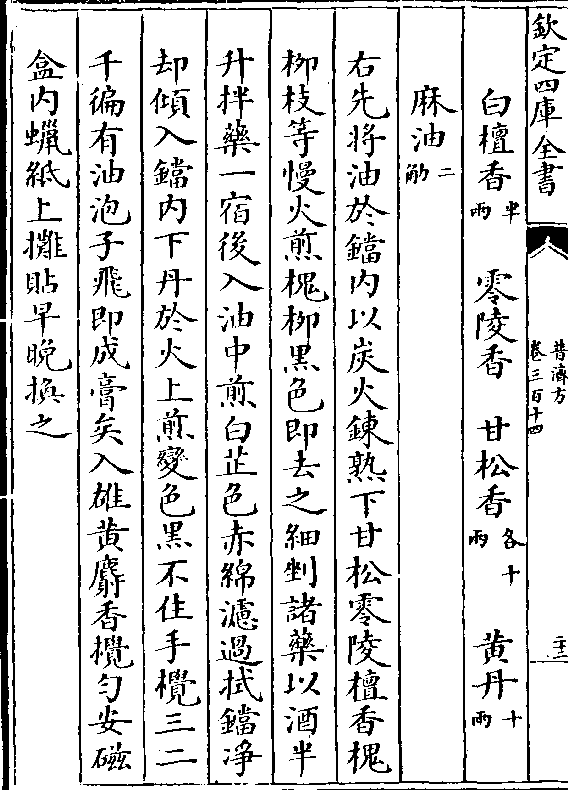 欽定四庫全書
普濟方
卷三百十四
二十三
白檀香半兩 零陵香 甘松香各十兩 黄丹十兩
麻油二觔
右先將油於鐺内以炭火鍊熟下甘松零陵檀香槐
柳枝等慢火煎槐柳黒色即去之細剉諸藥以酒半
升拌藥一宿後入油中煎白芷色赤綿濾過拭鐺淨
却傾入鐺内下丹於火上煎變色黒不住手攪三二
千徧有油泡子飛即成膏矣入雄黄麝香攪匀安磁
盒内蠟紙上攤貼早晚換之